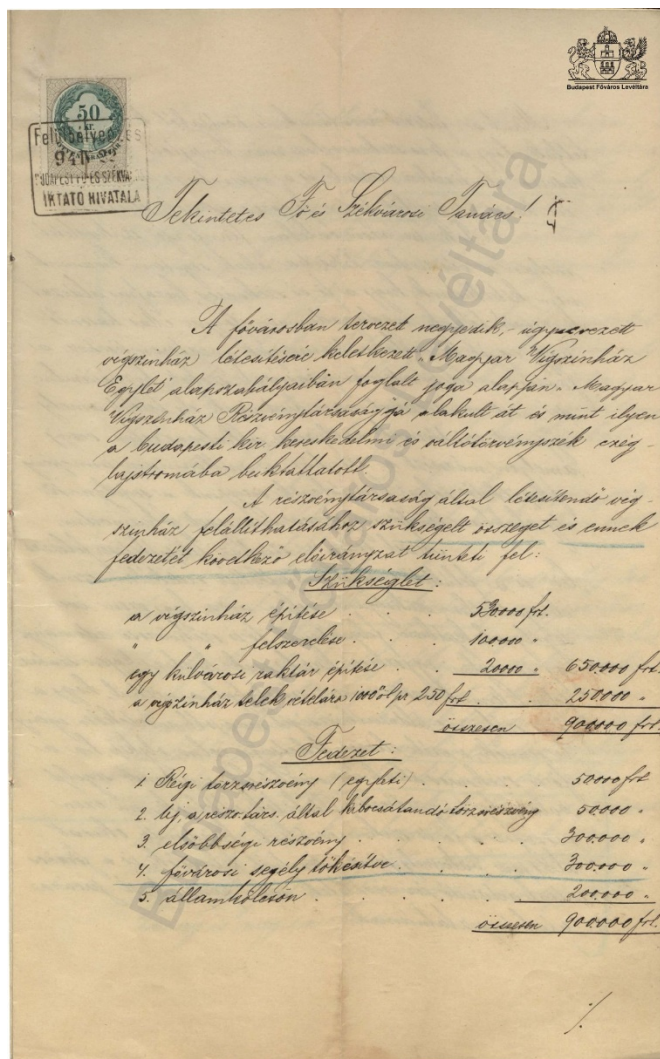 Budapest Főváros Levéltára
50
kr
Felülbélyegzés
94
BUDAPEST FŐ ÉS SZÉKVÁ
IKTATÓ HIVATALA
Tekintetes Fő és Székvárosi Tanács!
A fővárosban tervezett negyedik, – úgynevezett
vígszinház létesítésére keletkezett „Magyar Vígszinház
Egylet" alapszabályaiban foglalt joga alapján „Magyar
Vígszinház Részvénytársaság"gá alakult át és mint ilyen
a budapesti kir kereskedelmi és váltótörvényszék czég-
lajstromába beiktattatott.
A részvénytársaság által létesítendő víg-
szinház felállíthatásához szükségelt összeget és ennek
fedezetét következő előirányzat tünteti fel:
Szükséglet:
a vígszinház építése . . . 530.000 frt.
" " felszerelése . . . 100.000 "
egy külvárosi raktár építése . . 20000 " 650.000 frt.
a vígszinház telek vételára 1000□öl pr 250 frt . . 250.000 "
összesen 900.000 frt.
Fedezet:
1. Régi törzsrészvény (egyleti) . . . 50000 frt
2. Uj a részv. társ. által kibocsátandó törzsrészvény 50.000 "
3. elsőbbségi részvény . . . . 300.000 "
4. fővárosi segély tőkésítve . . . . 300.000 "
5. államkölcsön . . . . . 200.000 "
összesen 900.000 frt.
./.
Budapest Főváros Levéltára